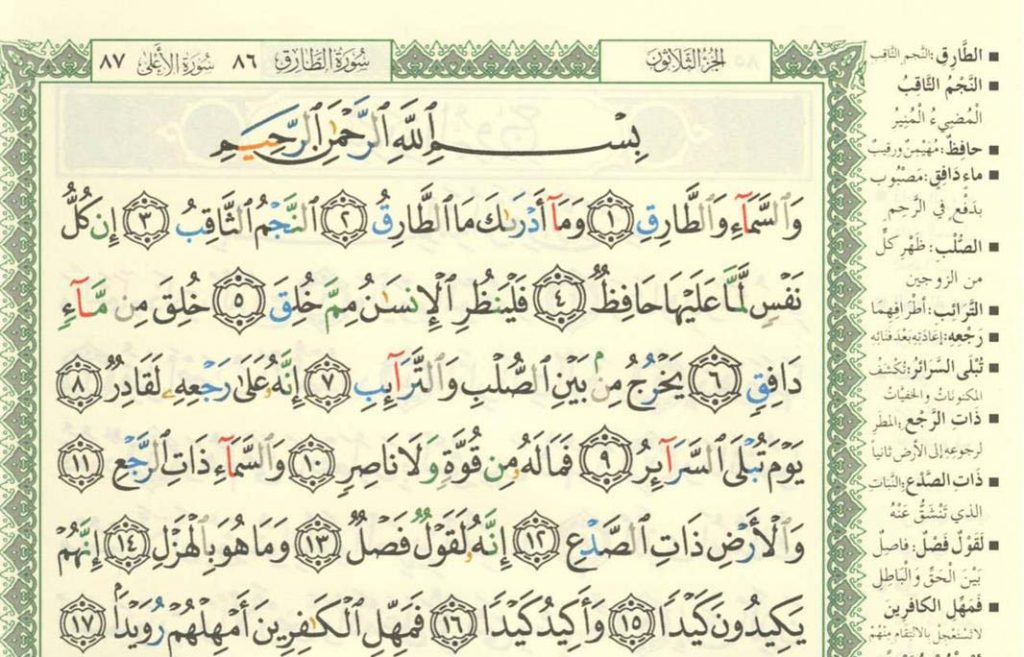 الجُزْءُ الثَّلَاثُونَ
سُورَةُ الطَّارِقِ ٨٦ سُورَةُ الأَعْلَىٰ ٨٧
بِسْمِ ٱللَّهِ ٱلرَّحْمَٰنِ ٱلرَّحِيمِ
وَٱلسَّمَآءِ وَٱلطَّارِقِ ١ وَمَآ أَدْرَىٰكَ مَا ٱلطَّارِقُ ٢ ٱلنَّجْمُ ٱلثَّاقِبُ ٣ إِن كُلُّ
نَفْسٍ لَّمَّا عَلَيْهَا حَافِظٌ ٤ فَلْيَنظُرِ ٱلْإِنسَٰنُ مِمَّ خُلِقَ ٥ خُلِقَ مِن مَّآءٍ
دَافِقٍ ٦ يَخْرُجُ مِنۢ بَيْنِ ٱلصُّلْبِ وَٱلتَّرَآئِبِ ٧ إِنَّهُۥ عَلَىٰ رَجْعِهِۦ لَقَادِرٌ ٨
يَوْمَ تُبْلَى ٱلسَّرَآئِرُ ٩ فَمَا لَهُۥ مِن قُوَّةٍ وَلَا نَاصِرٍ ١٠ وَٱلسَّمَآءِ ذَاتِ ٱلرَّجْعِ ١١
وَٱلْأَرْضِ ذَاتِ ٱلصَّدْعِ ١٢ إِنَّهُۥ لَقَوْلٌ فَصْلٌ ١٣ وَمَا هُوَ بِٱلْهَزْلِ ١٤ إِنَّهُمْ
يَكِيدُونَ كَيْدًا ١٥ وَأَكِيدُ كَيْدًا ١٦ فَمَهِّلِ ٱلْكَٰفِرِينَ أَمْهِلْهُمْ رُوَيْدًۢا ١٧
■ الطَّارِقِ: النَّجم الثَّاقِب
■ النَّجْمُ الثَّاقِبُ
الْمُضِيءُ الْمُنِيرُ
■ حافِظٌ: مُهَيْمِنٌ ورقيبٌ
■ ماء دَافِقٍ: مَصْبُوب
بدَفْعٍ في الرَّحِم
■ الصُّلْبِ: ظَهْرِ كلٍّ
من الزوجين
■ التَّرَائبِ: أطْرَافِهِمَا
■ رَجْعِهِ: إعَادَتِهِ بَعْدَ فَنَائِهِ
■ تُبْلَى السَّرَائرُ: تُكْشَفُ
المكنونَاتُ والخَفِيَّاتُ
■ ذَاتِ الرَّجْعِ: المطَرِ
لرجوعِهِ إلى الأرضِ ثانياً
■ ذَاتِ الصَّدْعِ: النَّبَاتِ
الذي تَنْشَقُّ عَنْهُ
■ لَقَوْلٌ فَصْلٌ: فاصِلٌ
بَيْنَ الْحَقِّ وَالْبَاطِلِ
■ فَمَهِّلِ الكافِرِينَ
لاتَسْتَعْجِلْ بالانْتِقَامِ مِنْهُمْ